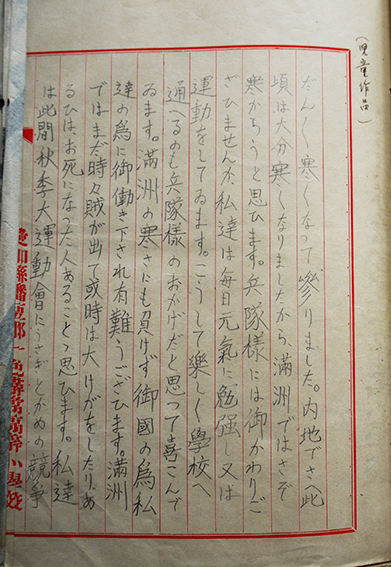 （児童作品）
だんく寒くなって参りました。内地でさへ此
頃は大分寒くなりましたから、満洲ではさぞ
寒からうと思ひます。兵隊様には御かわりご
ざひませんか、私達は毎日元氣に勉強し又は
運動をしてゐます。こうして樂しく學校へ
通へるのも兵隊様のおかげだと思って喜こんで
ゐます。満洲の寒さにも負けず御國の為私
達の為に御働き下され有難うございます。満洲
ではまだ時々賊が出て或時は大けがをしたり、あ
るひは、お死になった人あることゝ思ひます。私達
は此間秋季大運動會にうさぎとかめの競爭